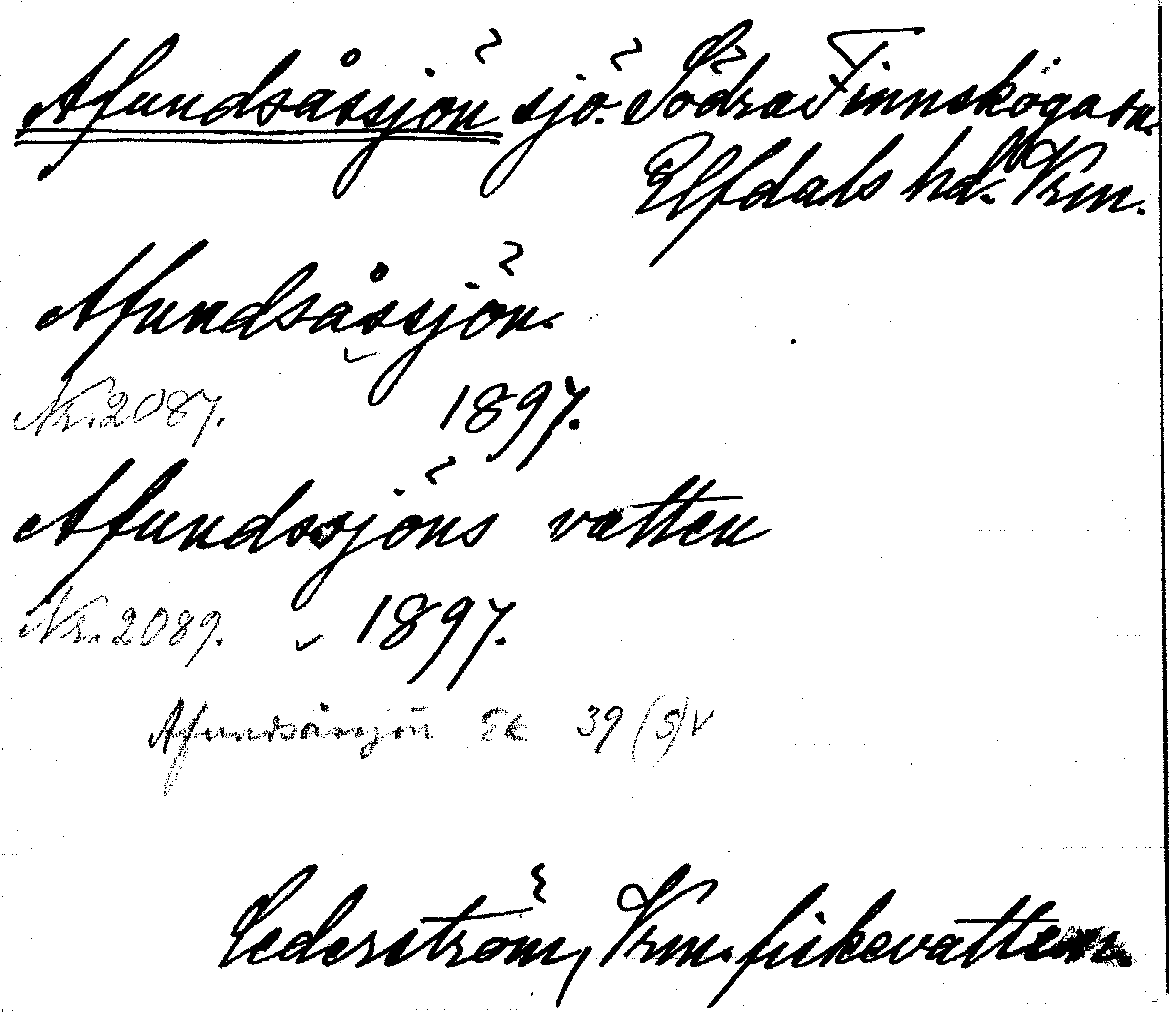 Afundsåssjön sjö. Södra Finnskoga sn.
Elfdals hd. Vrm.
Afundsåssjön.
Nr. 2087. 1897.
Afundssjöns vatten
Nr. 2089. 1897.
Afundsåssjön SK 39 (S)V
Cederström, Vrm. fiskevatten